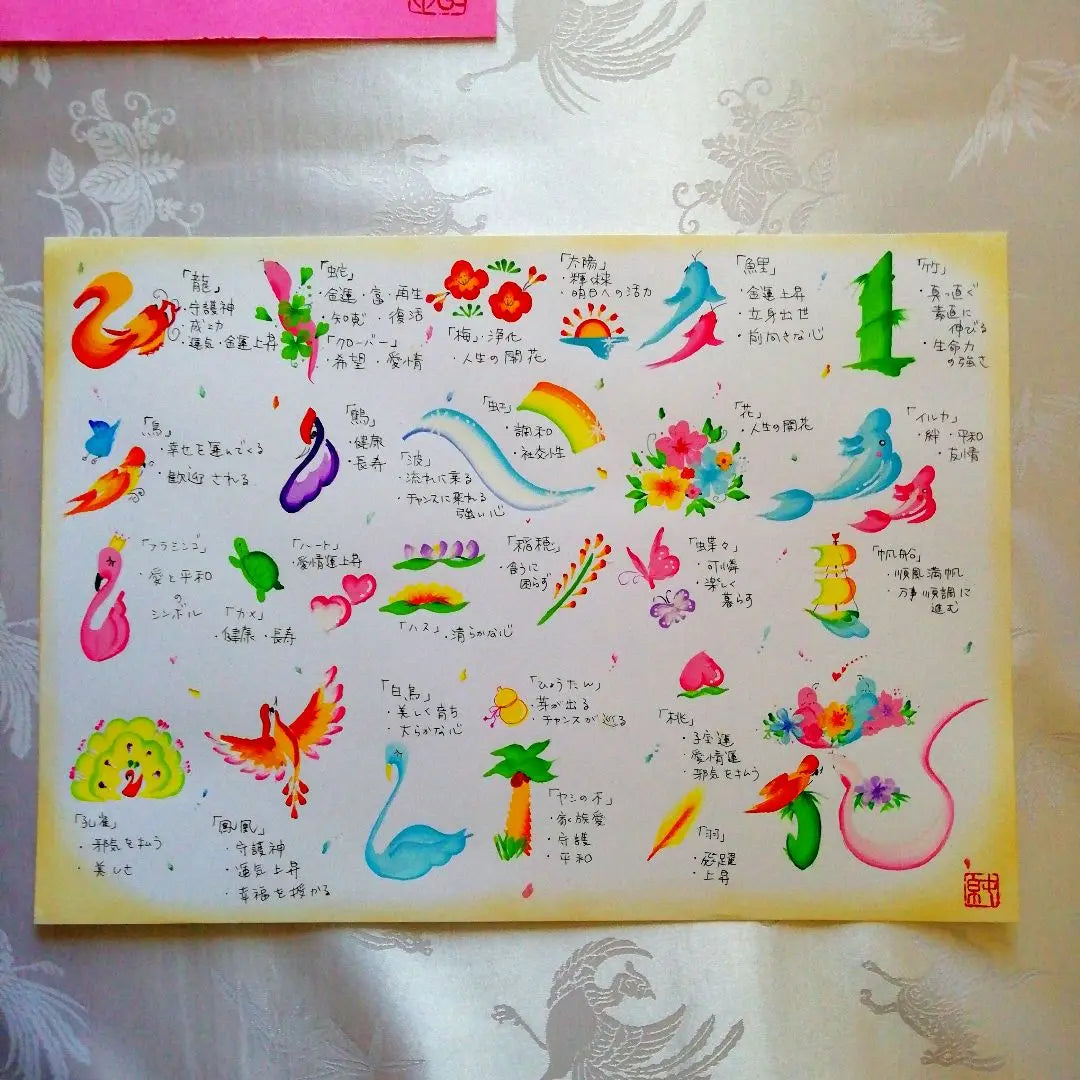 「龍」
・守護神
・成功
・運気・金運上昇
「蛇」
・金運・富・再生
・知恵・復活
「クローバー」
・希望・愛情
「梅」・浄化
・人生の開花
「太陽」
・輝き
・明日への活力
「鯉」
・金運上昇
・立身出世
・前向きな心
「竹」
・真っ直ぐ
素直に
伸びる
・生命力
の強さ
「鳥」
・幸せを運んでくる
・歓迎される
「鶴」
・健康
・長寿
「波」
・流れに乗る
・チャンスに乗れる
強い心
「虹」
・調和
・社交性
「花」
・人生の開花
「イルカ」
・絆・平和
・友情
「フラミンゴ」
・愛と平和
の
シンボル
「カメ」
・健康・長寿
「ハート」
・愛情運上昇
「ハス」・清らかな心
「稲穂」
・食うに
困らず
「蝶々」
・可憐
・楽しく
暮らす
「帆船」
・順風満帆
・万事順調に
進む
「孔雀」
・邪気を払う
・美しさ
「鳳凰」
・守護神
・運気上昇
・幸福を授かる
「白鳥」
・美しく育ち
・大らかな心
「ひょうたん」
・芽が出る
・チャンスが巡る
「ヤシの木」
・家族愛
・守護
・平和
「桃」
・子宝運
・愛情運
・邪気を払う
「羽」
・飛躍
・上昇